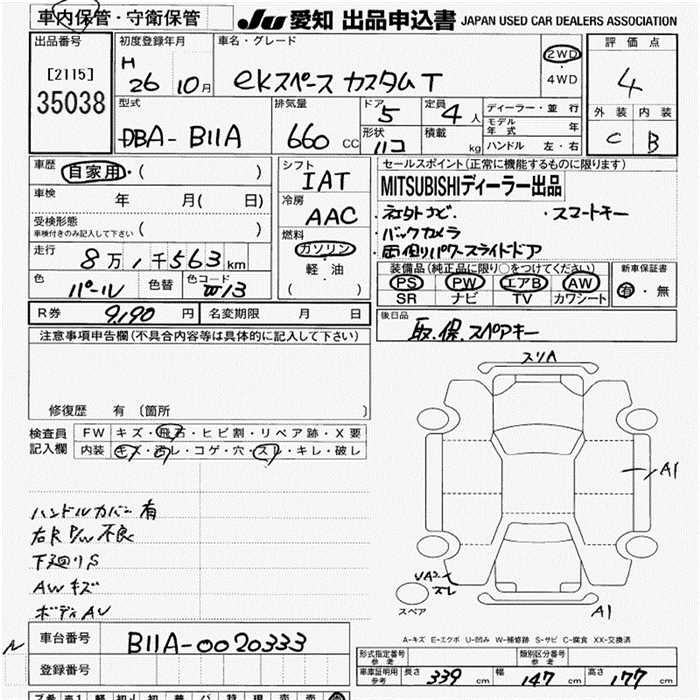 車内保管・守衛保管
JU 愛知 出品申込書 JAPAN USED CAR DEALERS ASSOCIATION
出品番号
[2115]
35038
初度登録年月
H 26 10月
車名・グレード
ekスペース カスタムT
2WD
4WD
評価点
4
外装 内装
C B
型式
DBA-B11A
排気量
660 CC
ドア
5
形状
ハコ
定員
4人
積載
kg
ディーラー・並行
モデル年式 年
ハンドル 左・右
車歴 自家用・( )
車検 年 月( 日)
受検形態
車検付きのみ記入して下さい ( )
走行 8万1千563km
色 パール 色替 色コード W13
シフト
IAT
冷房
AAC
燃料
ガソリン
軽油
( )
セールスポイント(正常に機能するものに限ります)
MITSUBISHIディーラー出品
・社外ナビ ・スマートキー
・バックカメラ
・両側パワースライドドア
装備品(純正品に限り○をつけてください)
PS PW エアB AW
SR ナビ TV カワシート
新車保証書
有・無
R券 9,190円 名変期限 月 日
後日品
取.保.スペアキー
注意事項申告欄(不具合内容等は具体的に記入して下さい)
修復歴 有 (箇所 )
検査員記入欄
FW キズ・飛石・ヒビ割・リペア跡・X要
内装 キズ・汚レ・コゲ・穴・スレ・キレ・破レ
ハンドルカバー有
右R P/W不良
下廻りS
AWキズ
ボディAU
スリA
A1
UA2
スレ
スペア
A1
A-キズ E-エクボ U-凹み W-補修跡 S-サビ C-腐食 XX-交換済
車台番号 B11A-0020333
登録番号
形式指定番号 参考
類別区分番号 参考
車庫証明用 参考 長さ 339cm 幅 147cm 高さ 177cm